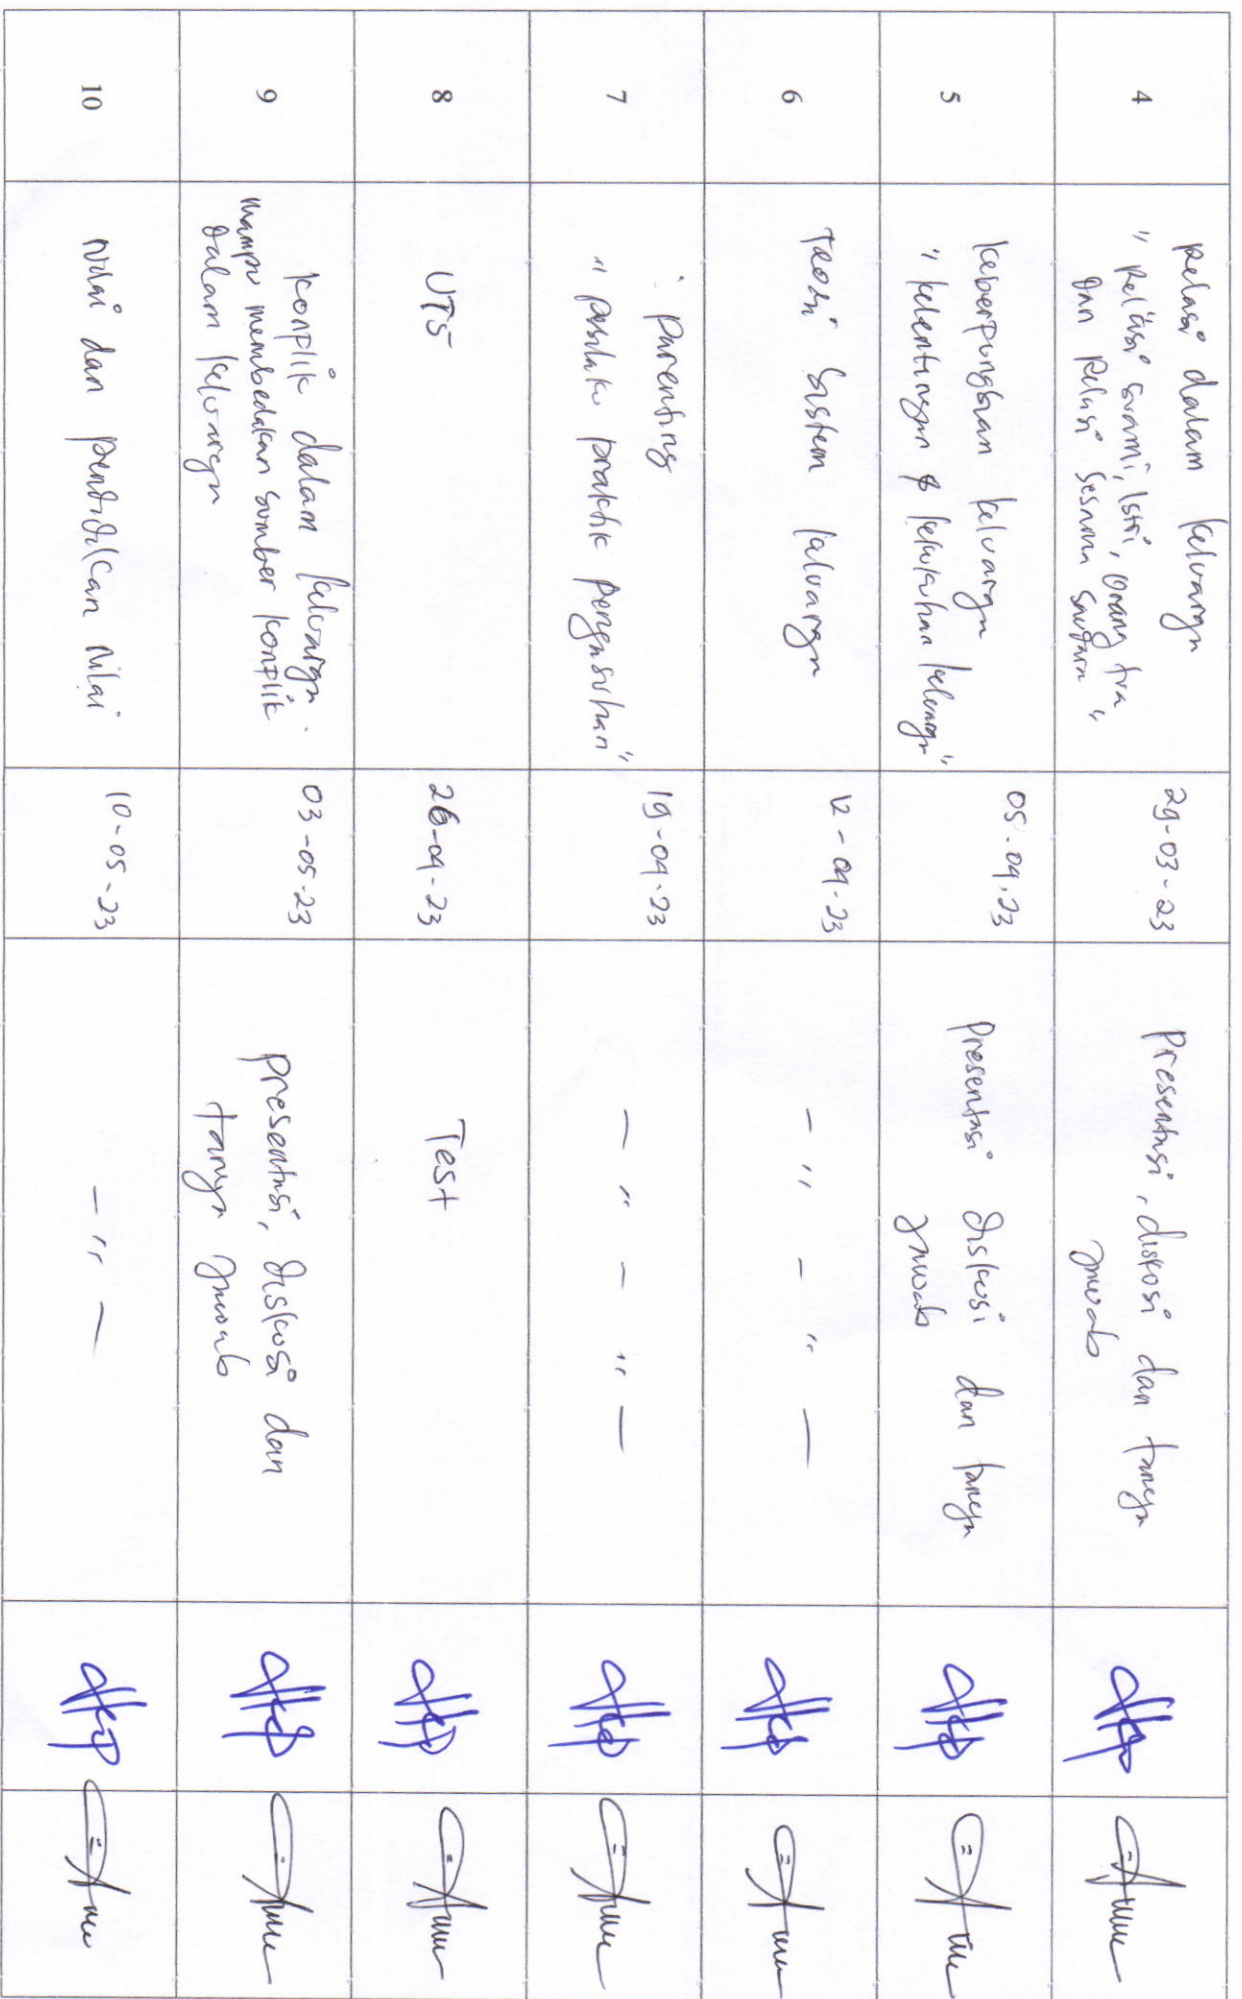 4
Relasi dalam keluarga
" Relasi suami, Istri, Orang tua
dan Relasi sesama saudara "
29-03-23
Presentasi, diskosi dan tanya
jawab
5
keberfungsian keluarga
" kelentingan & kekukuhan keluarga "
05-04-23
Presentasi diskusi dan tanya
jawab
6
Teori sistem keluarga
12-04-23
- " - " -
7
parenting
" perilaku praktik pengasuhan "
19-04-23
- " - " -
8
UTS
26-04-23
Test
9
konflik dalam keluarga.
mampu membedakan sumber konflik
dalam keluarga
03-05-23
presentasi, diskusi dan
tanya jawab
10
Nilai dan pendidikan nilai
10-05-23
- " -